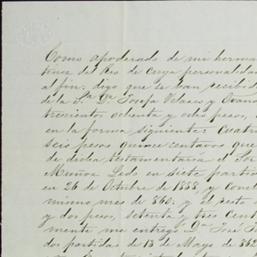 Como apoderado de mi herma
tenes del Rio de Ceya personalidad
al fin: digo que se han recibid
de la Sta. Da. Josefa Velasco y Ovand
trecientos ochenta y ocho pesos,
en la forma siguiente: Cuatro
seis pesos quince centavos que
de dicha testamentaria el Sor
Muñoz Ledo en siete partid
en 26 de Octubre de 1858, y conclu
mismo mes de 360, y el resto
y dos pesos, setenta y tres cent
mente me entregó Da. José
dos partidas de 13 de Mayo de 362